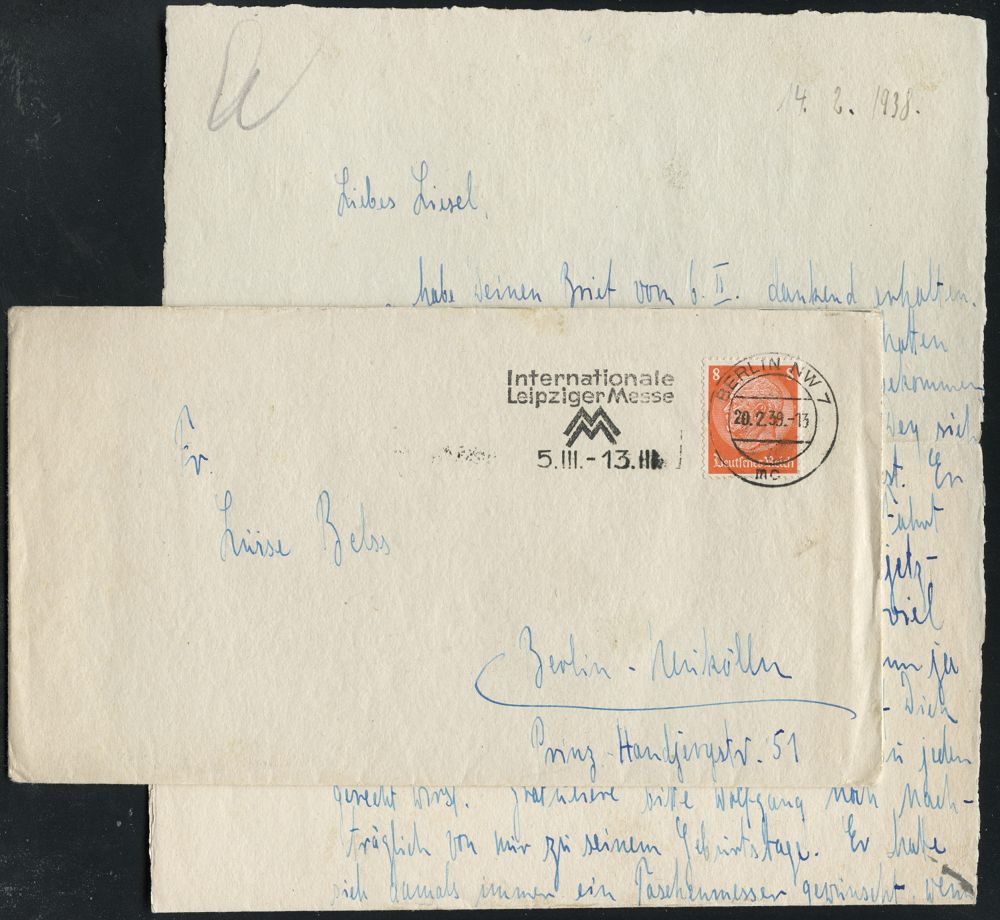 14. 2. 1938.
Liebes Liesel,
habe Deinen Brief vom 6. II. dankend erhalten.
hatten
gekommen
sich
Er
jetz-
viel
nun ja
- Dich
zu jeden
gerecht wirst. Gratuliere bitte Wolfgang noch nach-
träglich von mir zu seinem Geburtstage. Er hatte
sich damals immer ein Taschenmesser gewünscht. Wenn
Internationale
Leipziger Messe
5.III.-13.III.
8
Deutsches Reich
BERLIN NW 7
20.2.38.-13
mc
Fr.
Luise Belss
Berlin-Neukölln
Prinz-Handjerystr. 51